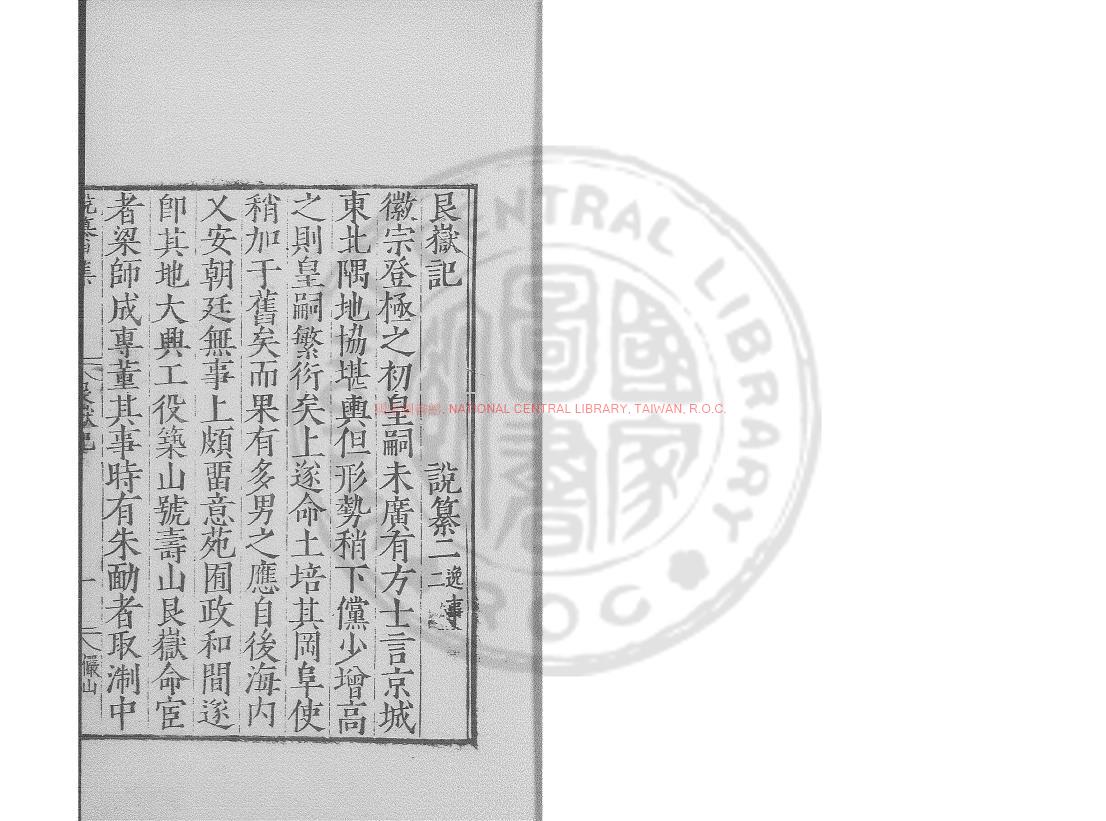 艮嶽記 說纂二 逸事二
徽宗登極之初皇嗣未廣有方士言京城
東北隅地協堪輿但形勢稍下儻少增高
之則皇嗣繁衍矣上遂命土培其岡阜使
稍加于舊矣而果有多男之應自後海内
乂安朝廷無事上頗畱意苑囿政和間遂
卽其地大興工役築山號壽山艮嶽命宦
者梁師成專董其事時有朱勔者取淛中
艮嶽記 一 儼山
NATIONAL CENTRAL LIBRARY, TAIWAN, R.O.C.
CENTRAL LIBRARY
R.O.C.